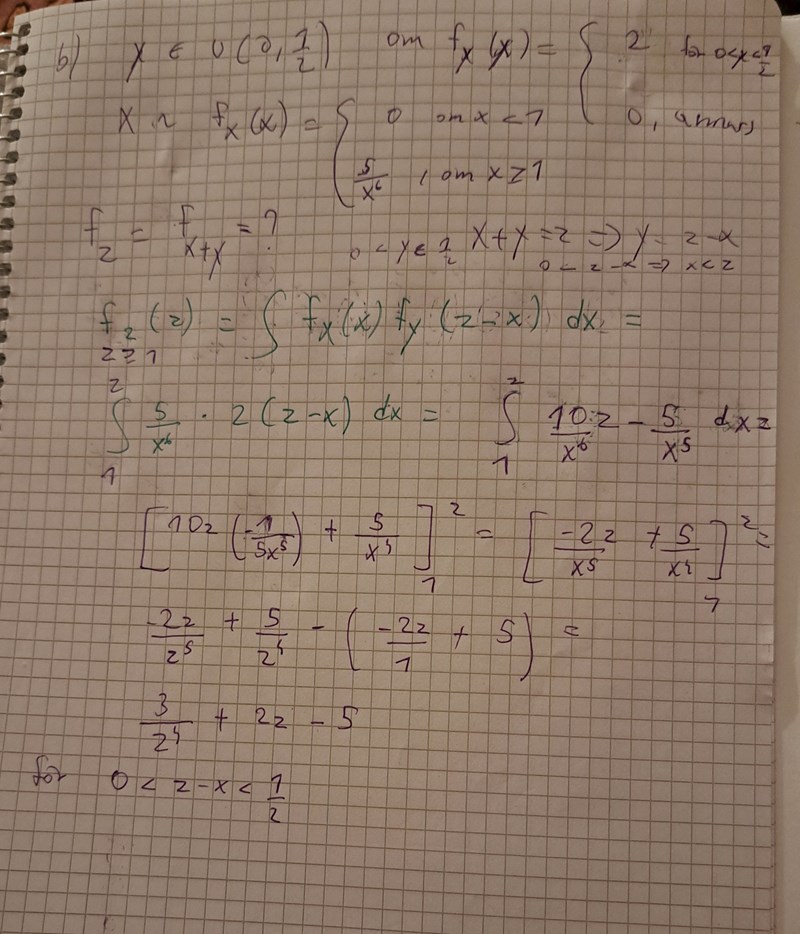 b) Y ∈ U(0, 1/2) om f_Y(x) = { 2 för 0<x<1/2
0, annars
X ~ f_X(x) = { 0 om x < 1
5/x⁶, om x ≥ 1
f_Z = f_{X+Y} = ? 0 < y ∈ 1/2 X+Y = Z => Y = Z - X
0 < z - x => x < z
f_Z(z) = ∫ f_X(x) f_Y(z-x) dx =
z ≥ 1
∫₁ᶻ 5/x⁶ · 2(z-x) dx = ∫₁ᶻ 10z/x⁶ - 5/x⁵ dx =
[10z (-1/5x⁵) + 5/x⁴]₁ᶻ = [-2z/x⁵ + 5/x⁴]₁ᶻ =
-2z/z⁵ + 5/z⁴ - (-2z/1 + 5) =
3/z⁴ + 2z - 5
för 0 < z-x < 1/2